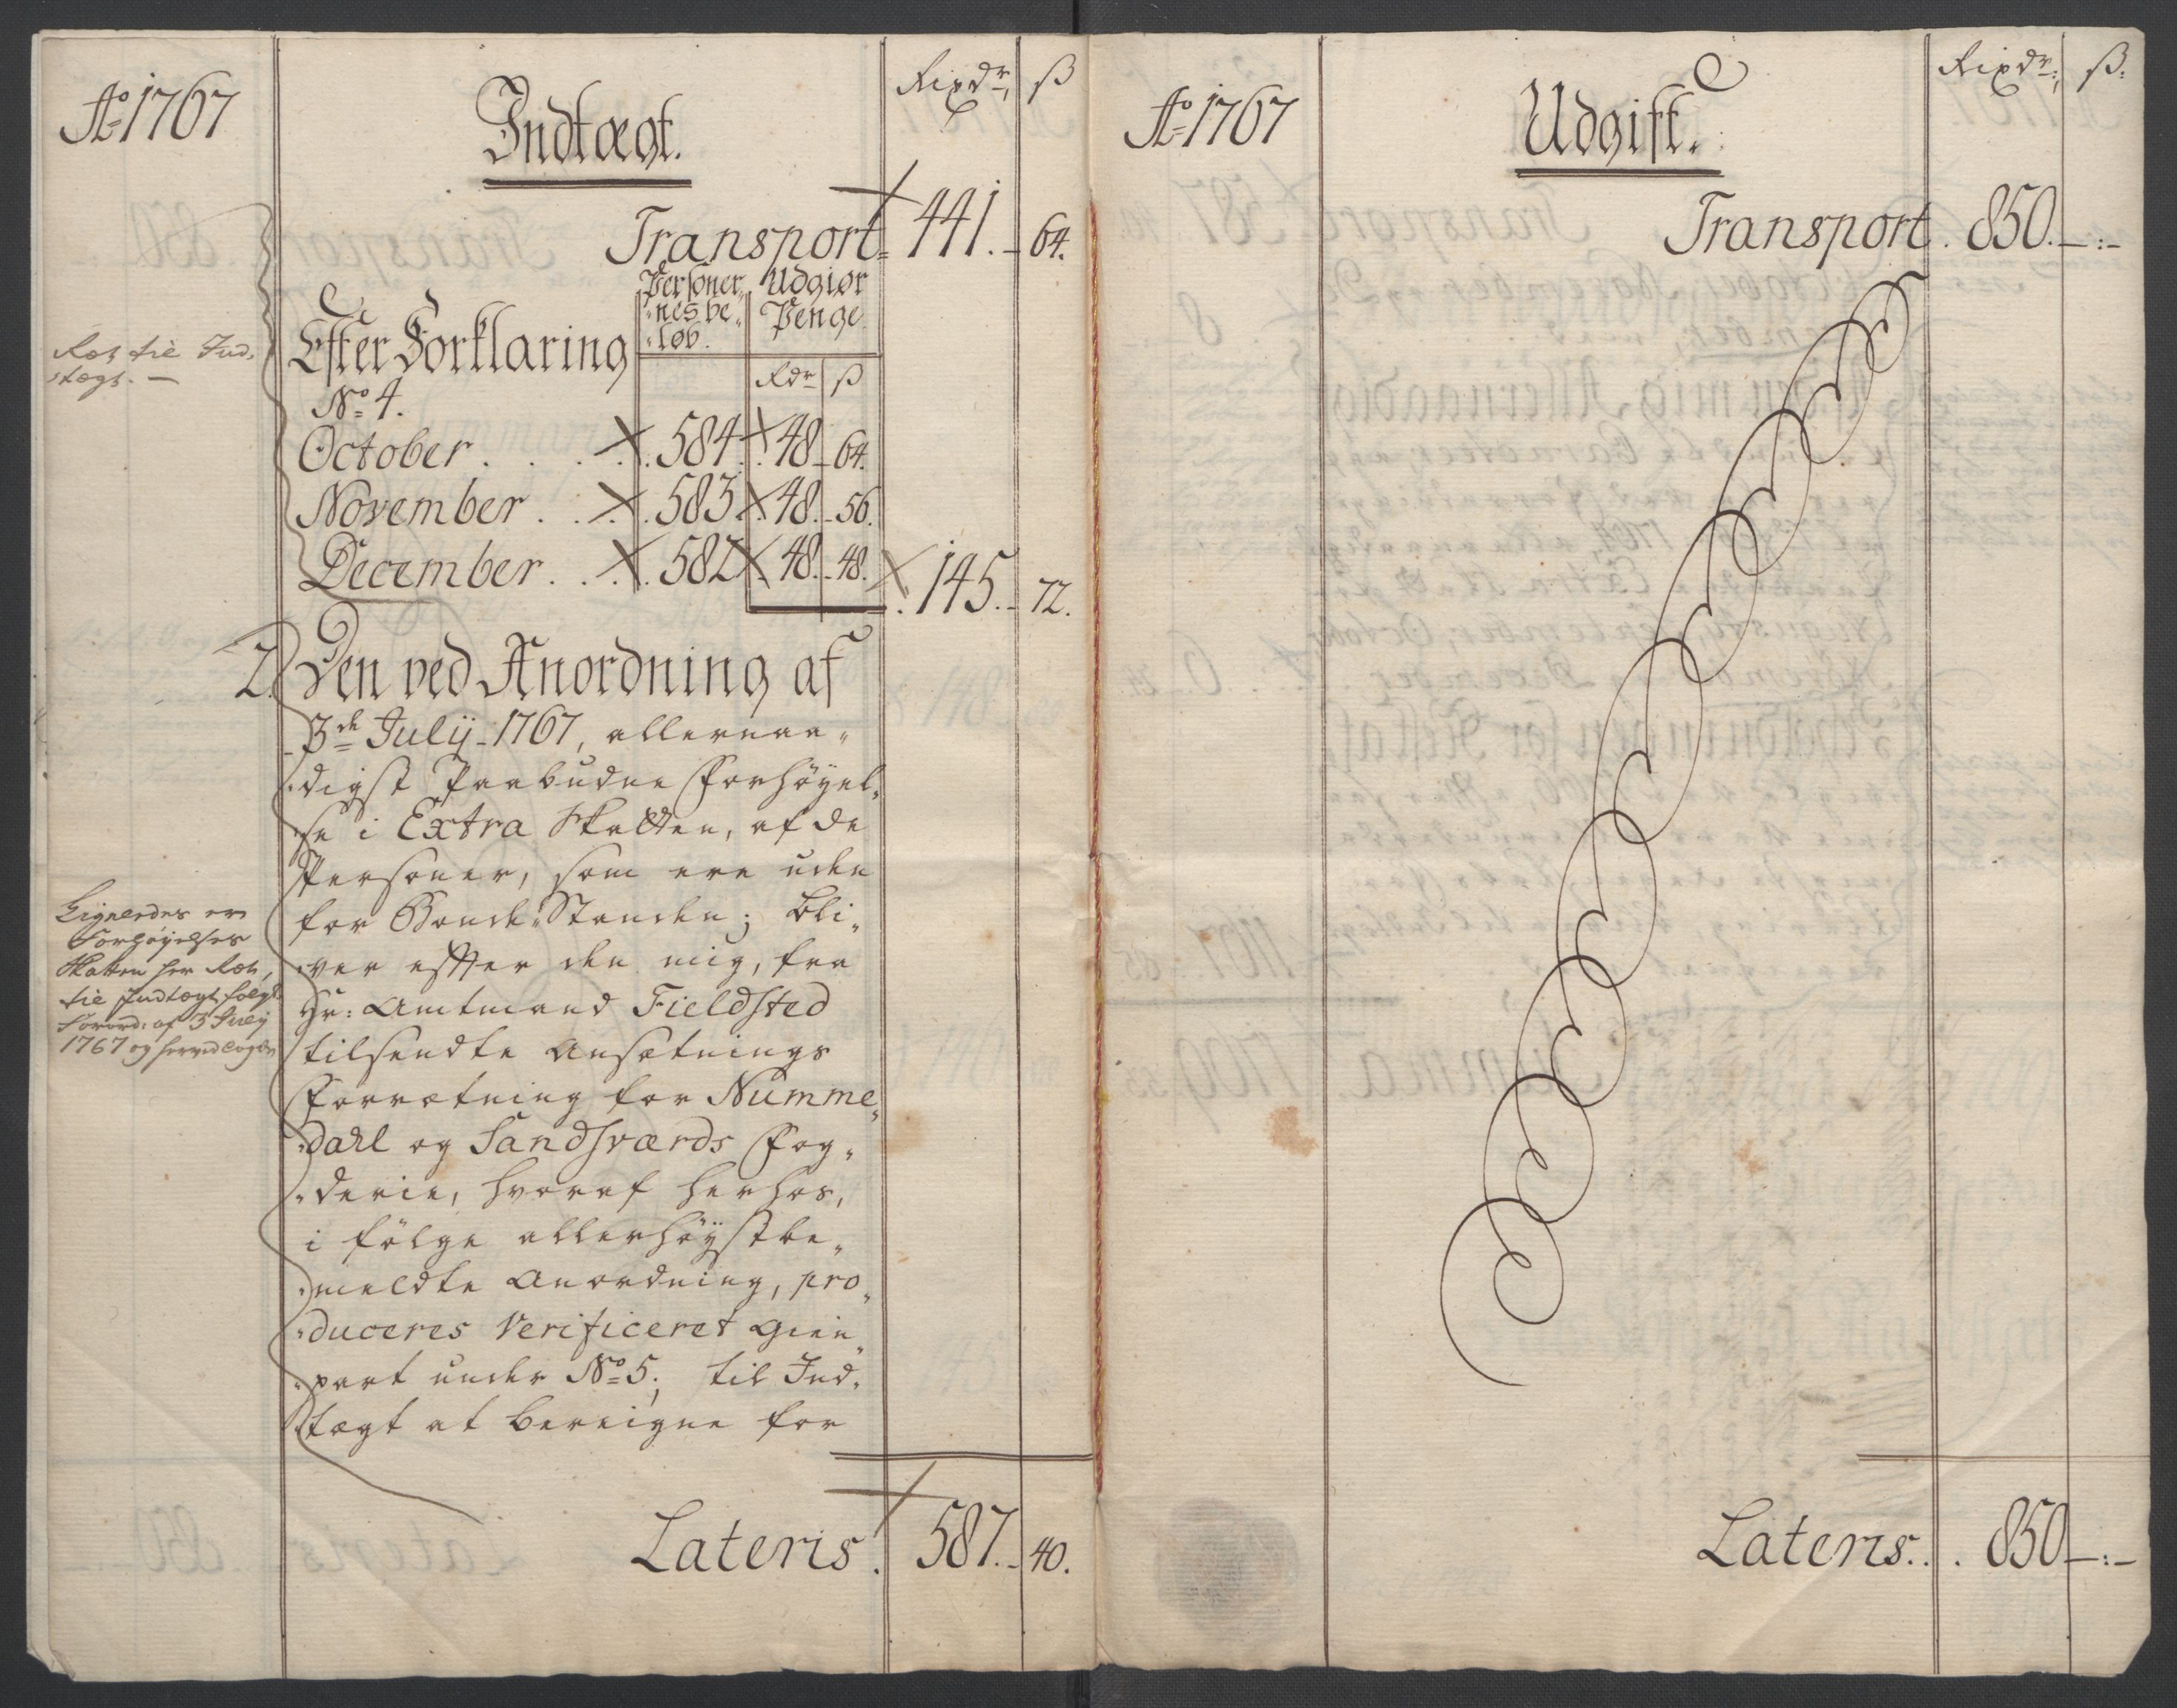 Ao 1767
Indtægt.
Rixdr, ß
Transport 441. - 64.
Personer„ Udgiør
„nes be„ Penge
„løb.
Efter Forklaring
No 4.
Rdr ß
Ret til Ind„
„tægt. —
October . . . 584. 48 - 64.
November . . . 583. 48. - 56.
December . . . 582. 48. - 48.
145. - 72.
2. Den ved Anordning af
3de Julij 1767, allernaa„
„digst Paabudne Forhøyel„
„se i Extra Skatten, af de
Personer, som ere uden
for Bonde-Standen; bli„
„ver efter den mig, fra
Hr: Amtmand Fieldsted
tilsendte Ansætnings
Forretning for Numme„
„dahl og Sandsværds Fog„
„derie, hvoraf herhos,
i følge allerhøystbe„
„meldte Anordning, pro„
„duceres Verificeret Gien„
„part under No 5; til Ind„
„tægt at bereigne for
Ligeledes er
Forhøyelses
Skatten her Ret,
til Indtægt følgl.
Forord: af 3 July
1767 og
Lateris. 587. - 40.
Ao 1767
Udgift.
Rixdr, ß:
Transport. 850. —:—
Lateris. . . 850 —:—